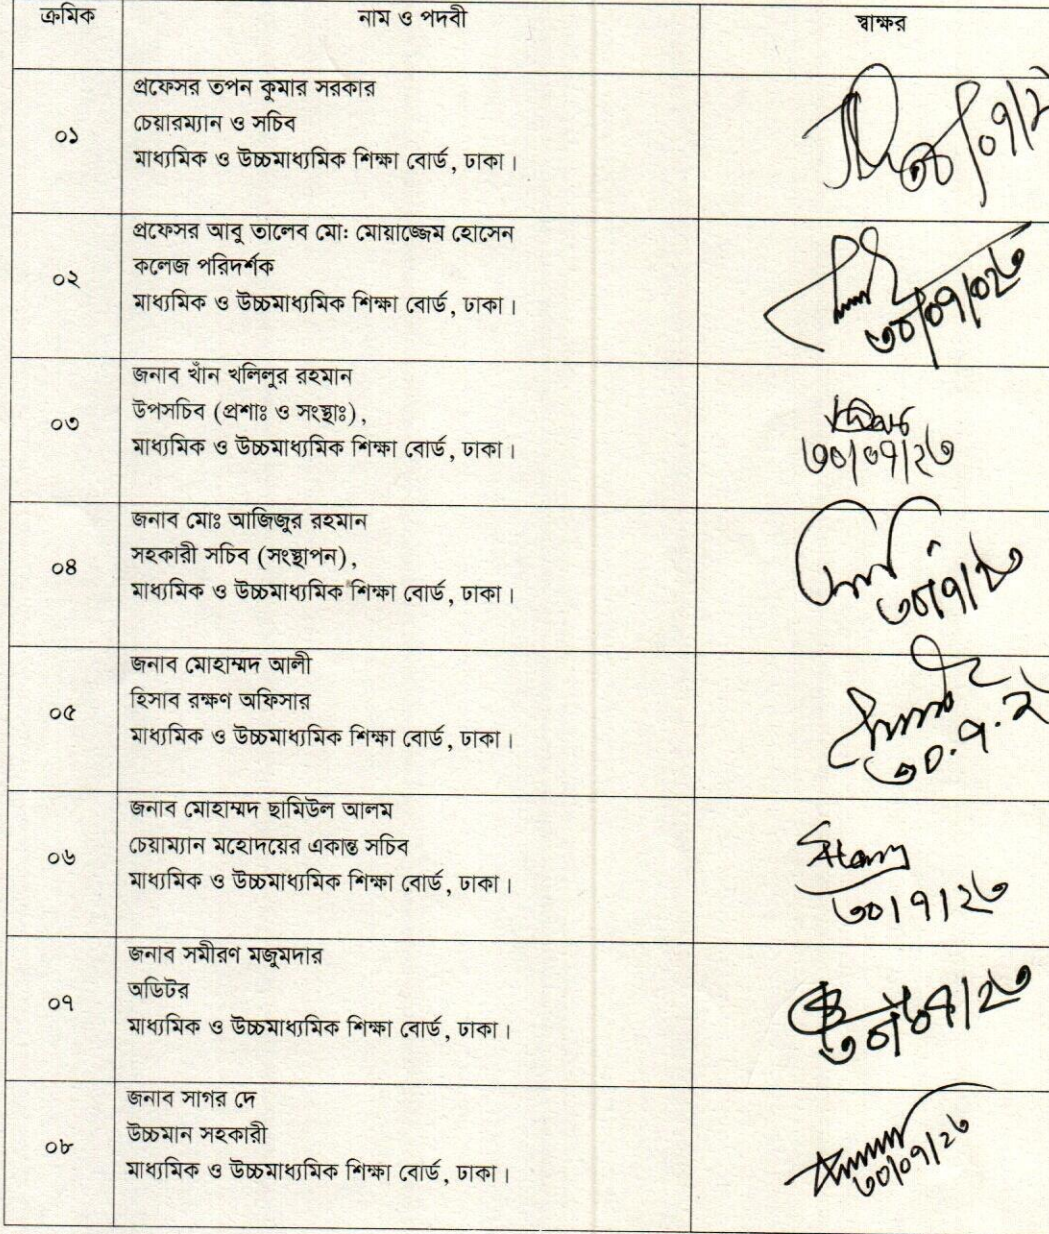 ক্রমিক নাম ও পদবী স্বাক্ষর
০১
প্রফেসর তপন কুমার সরকার
চেয়ারম্যান ও সচিব
মাধ্যমিক ও উচ্চমাধ্যমিক শিক্ষা বোর্ড, ঢাকা।
০২
প্রফেসর আবু তালেব মো: মোয়াজ্জেম হোসেন
কলেজ পরিদর্শক
মাধ্যমিক ও উচ্চমাধ্যমিক শিক্ষা বোর্ড, ঢাকা।
৩০/০৭/০২৩
০৩
জনাব খাঁন খলিলুর রহমান
উপসচিব (প্রশাঃ ও সংস্থাঃ),
মাধ্যমিক ও উচ্চমাধ্যমিক শিক্ষা বোর্ড, ঢাকা।
৩০/০৭/২৩
০৪
জনাব মোঃ আজিজুর রহমান
সহকারী সচিব (সংস্থাপন),
মাধ্যমিক ও উচ্চমাধ্যমিক শিক্ষা বোর্ড, ঢাকা।
৩০/৭/২৩
০৫
জনাব মোহাম্মদ আলী
হিসাব রক্ষণ অফিসার
মাধ্যমিক ও উচ্চমাধ্যমিক শিক্ষা বোর্ড, ঢাকা।
৩০.৭.২
০৬
জনাব মোহাম্মদ ছামিউল আলম
চেয়াম্যান মহোদয়ের একান্ত সচিব
মাধ্যমিক ও উচ্চমাধ্যমিক শিক্ষা বোর্ড, ঢাকা।
৩০/৭/২৩
০৭
জনাব সমীরণ মজুমদার
অডিটর
মাধ্যমিক ও উচ্চমাধ্যমিক শিক্ষা বোর্ড, ঢাকা।
৩০/০৭/২৩
০৮
জনাব সাগর দে
উচ্চমান সহকারী
মাধ্যমিক ও উচ্চমাধ্যমিক শিক্ষা বোর্ড, ঢাকা।
৩০/০৭/২৩